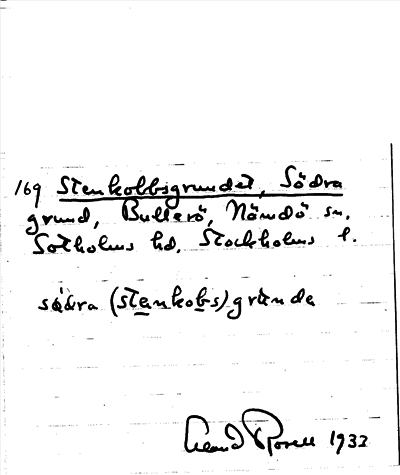 169 Stenkobbsgrundet, Södra
grund, Bullerö, Nämdö sn.
Sotholms hd. Stockholms l.
södra (stenkobs)grùnde
1933